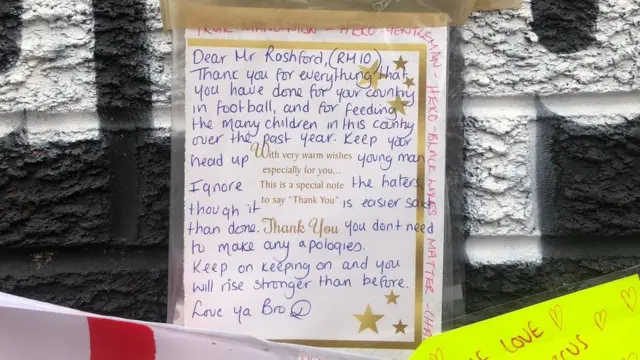 TRUE MANCUNIAN - HERO - GENTLEMAN - HERO - BLACK LIVES MATTER - CHA
Dear Mr Rashford, (RM10)
Thank you for everything that
you have done for your country
in football, and for feeding
the many children in this country
over the past year. Keep your
head up With very warm wishes young man
especially for you...
Ignore This is a special note the haters,
to say "Thank You"
though it is easier said
than done. Thank You you dont need
to make any apologies.
Keep on keeping on and you
will rise stronger than before.
Love ya Bro
LOVE